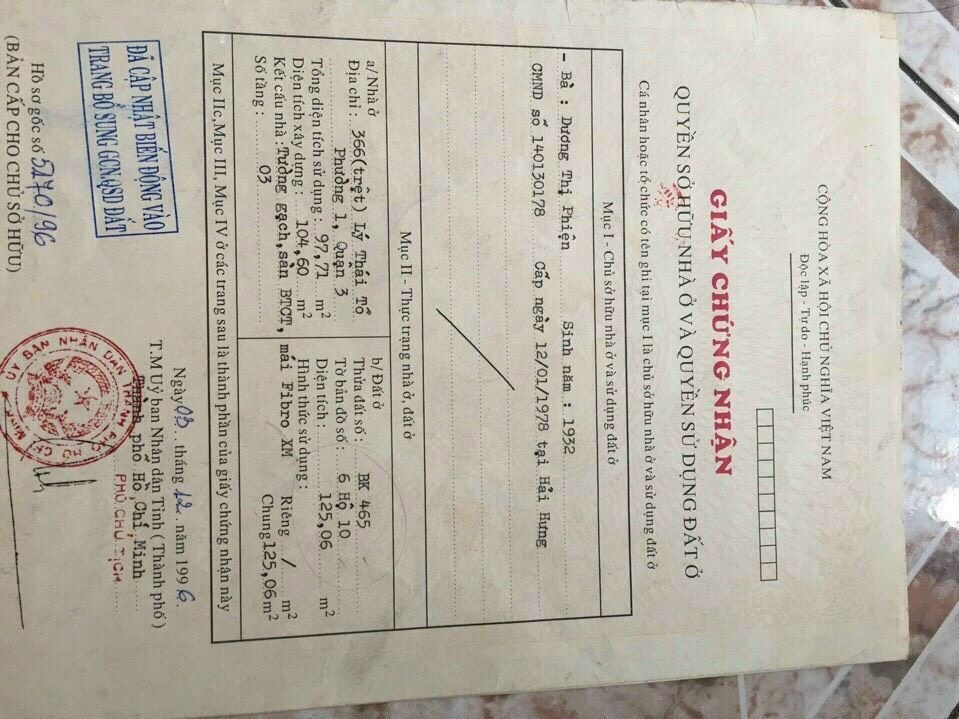 CỘNG HÒA XÃ HỘI CHỦ NGHĨA VIỆT NAM
Độc lập - Tự do - Hạnh phúc
GIẤY CHỨNG NHẬN
QUYỀN SỞ HỮU NHÀ Ở VÀ QUYỀN SỬ DỤNG ĐẤT Ở
Cá nhân hoặc tổ chức có tên ghi tại mục I là chủ sở hữu nhà ở và sử dụng đất ở
Mục I - Chủ sở hữu nhà ở và sử dụng đất ở
- Bà : Dương Thị Phiện Sinh năm : 1932
CMND số 140130178 Cấp ngày 12/01/1978 tại Hải Hưng
Mục II - Thực trạng nhà ở, đất ở
a/ Nhà ở
Địa chỉ : 366(trệt) Lý Thái Tổ
Phường 1, Quận 3
Tổng diện tích sử dụng : 97,71 m2
Diện tích xây dựng : 104,60 m2
Kết cấu nhà : Tường gạch, sàn BTCT, mái Fibro XM
Số tầng : 03
b/ Đất ở
Thửa đất số : BK 465
Tờ bản đồ số : 6 Hộ 10
Diện tích : 125,06 m2
Hình thức sử dụng :
Riêng / m2
Chung 125,06 m2
Mục IIc, Mục III, Mục IV ở các trang sau là thành phần của giấy chứng nhận này
Ngày 03 tháng 12 năm 1996.
T.M Uỷ ban Nhân dân Tỉnh ( Thành phố )
Thành phố Hồ Chí Minh
PHÓ CHỦ TỊCH
ĐÃ CẬP NHẬT BIẾN ĐỘNG VÀO
TRANG BỔ SUNG GCN.QSD ĐẤT
Hồ sơ gốc số 5170/96
(BẢN CẤP CHO CHỦ SỞ HỮU)